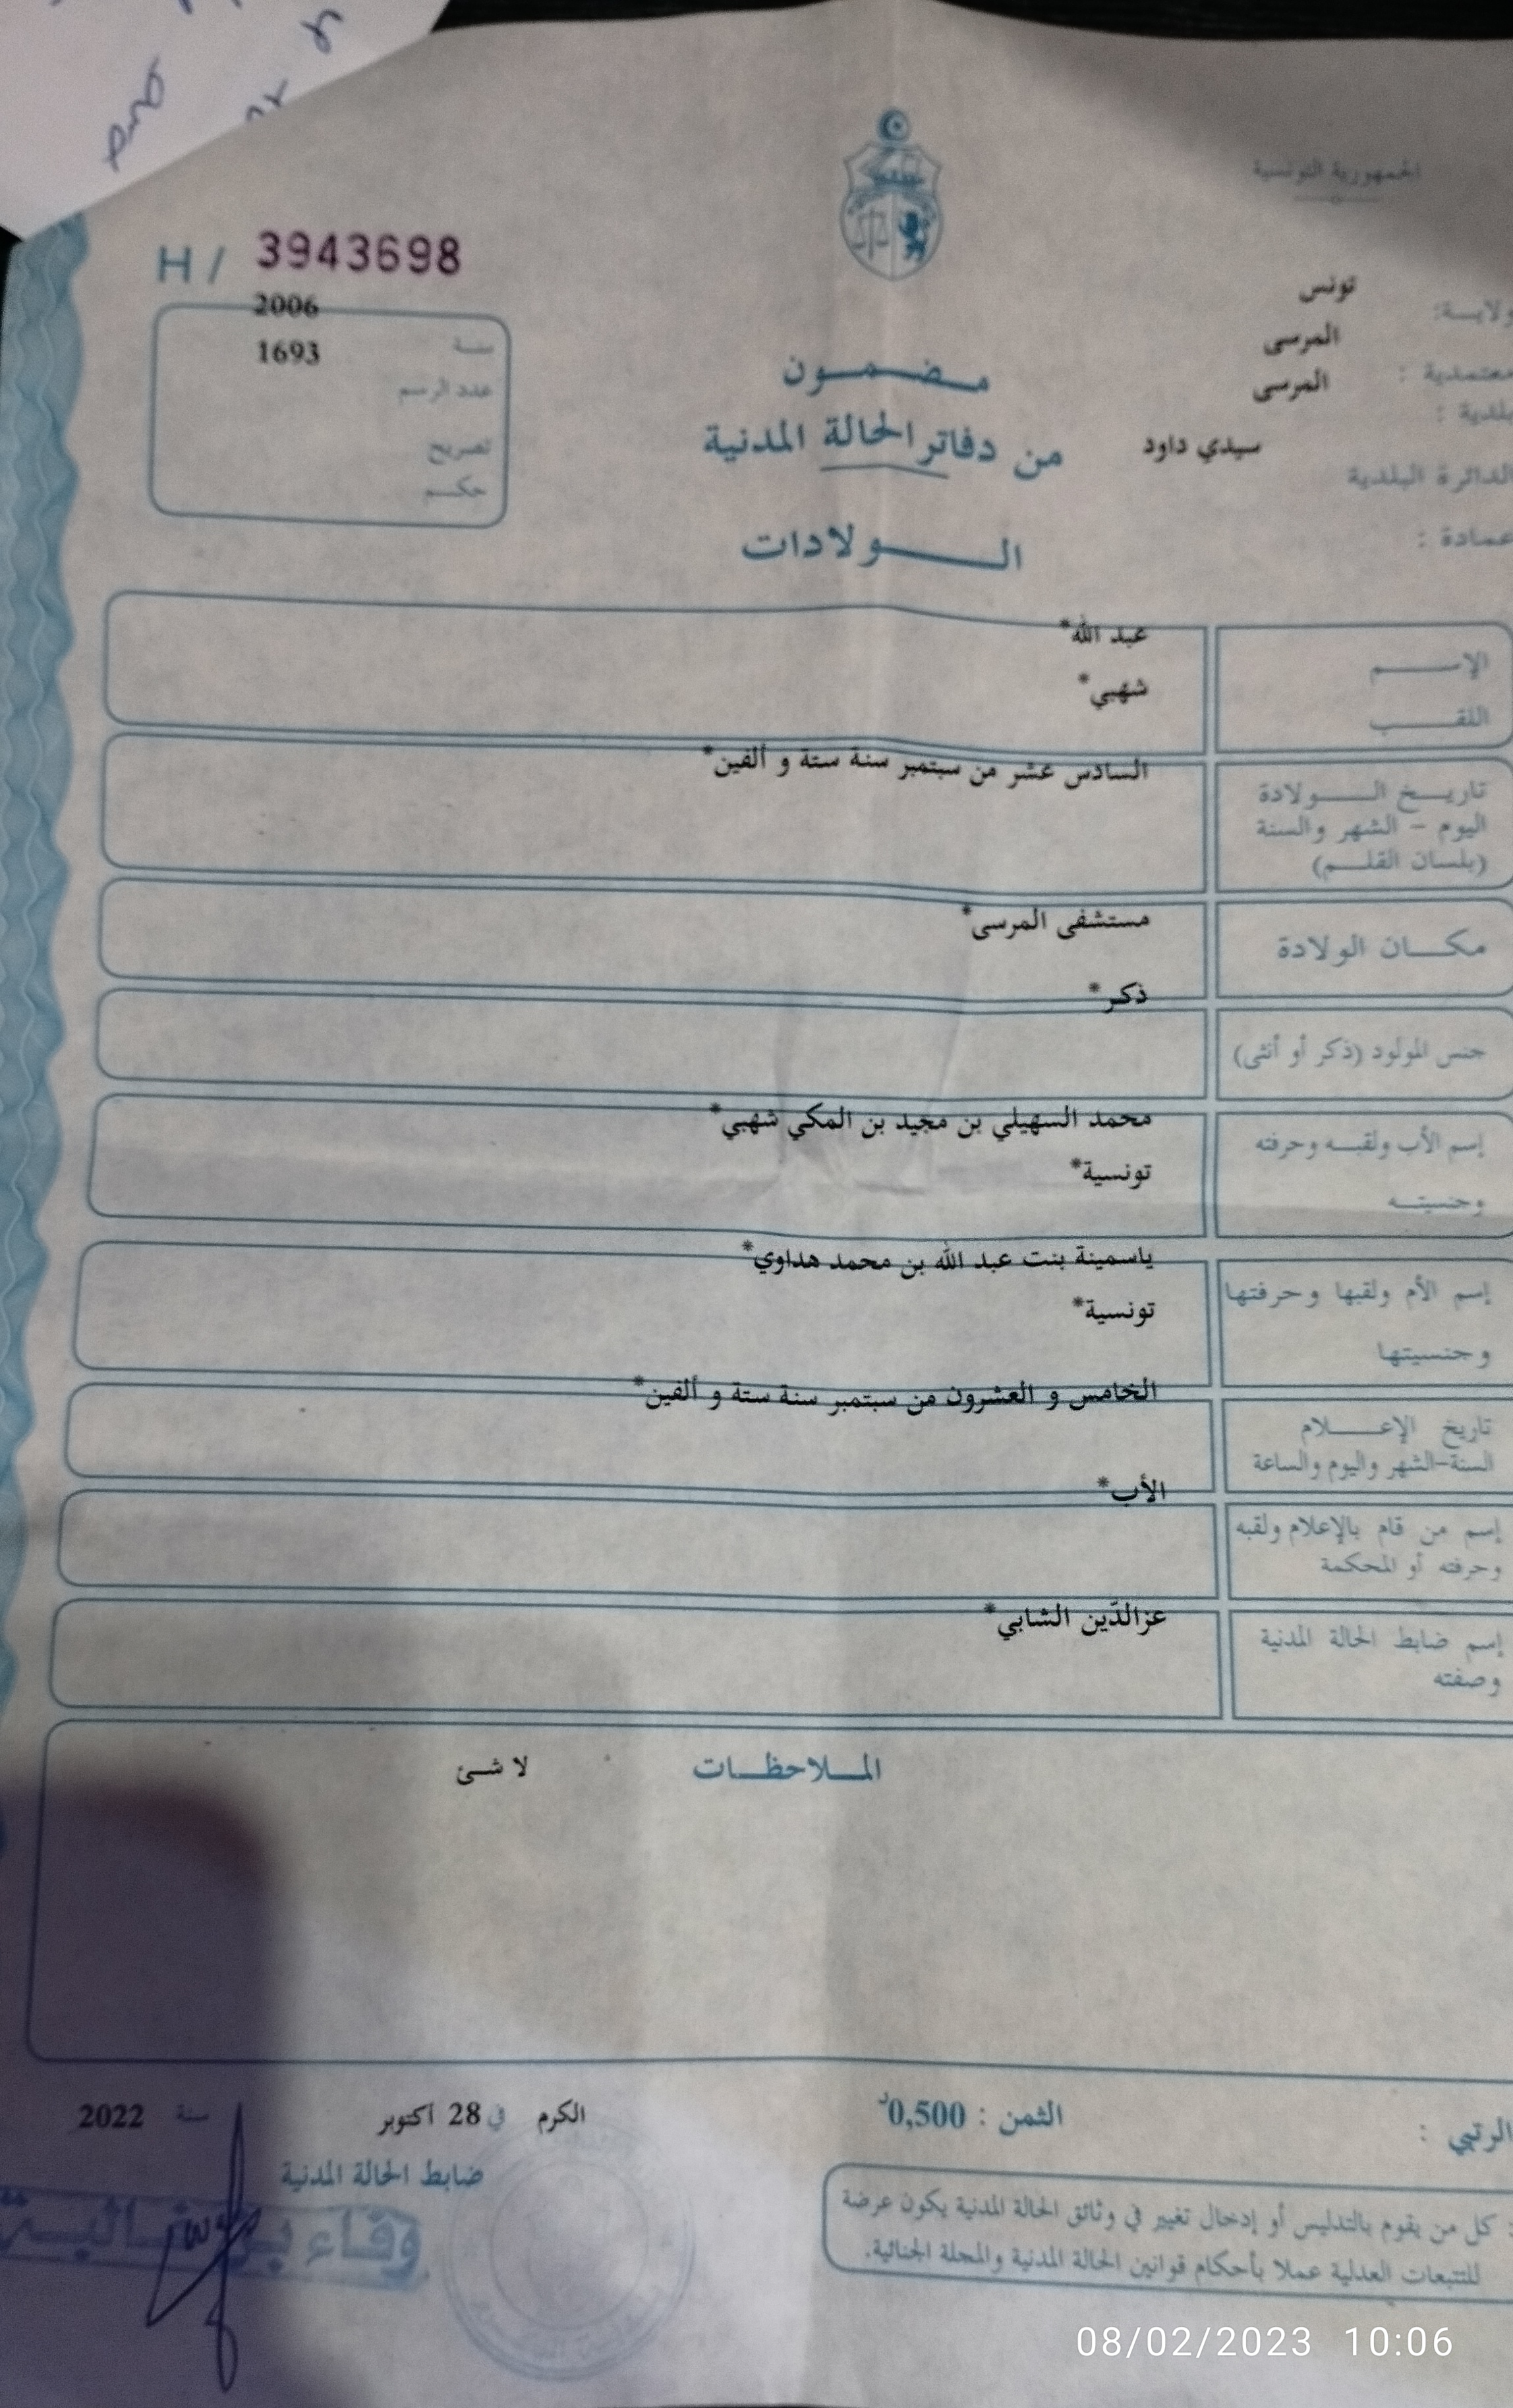 الجمهورية التونسية
H / 3943698
ولايـــة: تونس
معتمدية : المرسى
بلدية : المرسى
الدائرة البلدية سيدي داود
عمادة :
سنـــة 2006
عدد الرسم 1693
تصريح
حكـــم
مـضـمـون
من دفاتر الحالة المدنية
الـــولادات
الإســـــم عبد الله*
اللقـــــب شهبي*
تاريـــخ الـــــولادة السادس عشر من سبتمبر سنة ستة و ألفين*
اليوم – الشهر والسنة
(بلسان القلـــم)
مكـــان الولادة مستشفى المرسى*
جنس المولود (ذكر أو أنثى) ذكر*
إسم الأب ولقبـــه وحرفته محمد السهيلي بن مجيد بن المكي شهبي*
وجنسيتـــه تونسية*
إسم الأم ولقبها وحرفتها ياسمينة بنت عبد الله بن محمد هداوي*
وجنسيتها تونسية*
تاريخ الإعـــــلام الخامس و العشرون من سبتمبر سنة ستة و ألفين*
السنة–الشهر واليوم والساعة
إسم من قام بالإعلام ولقبه الأب*
وحرفته أو المحكمة
إسم ضابط الحالة المدنية عزالدّين الشابي*
وصفته
المـــلاحظـــات لا شئ
الثمن : 0,500د
الكرم في 28 أكتوبر سنة 2022
ضابط الحالة المدنية
: كل من يقوم بالتدليس أو إدخال تغيير في وثائق الحالة المدنية يكون عرضة
للتتبعات العدلية عملا بأحكام قوانين الحالة المدنية والمجلة الجنائية.
وفاء
08/02/2023 10:06